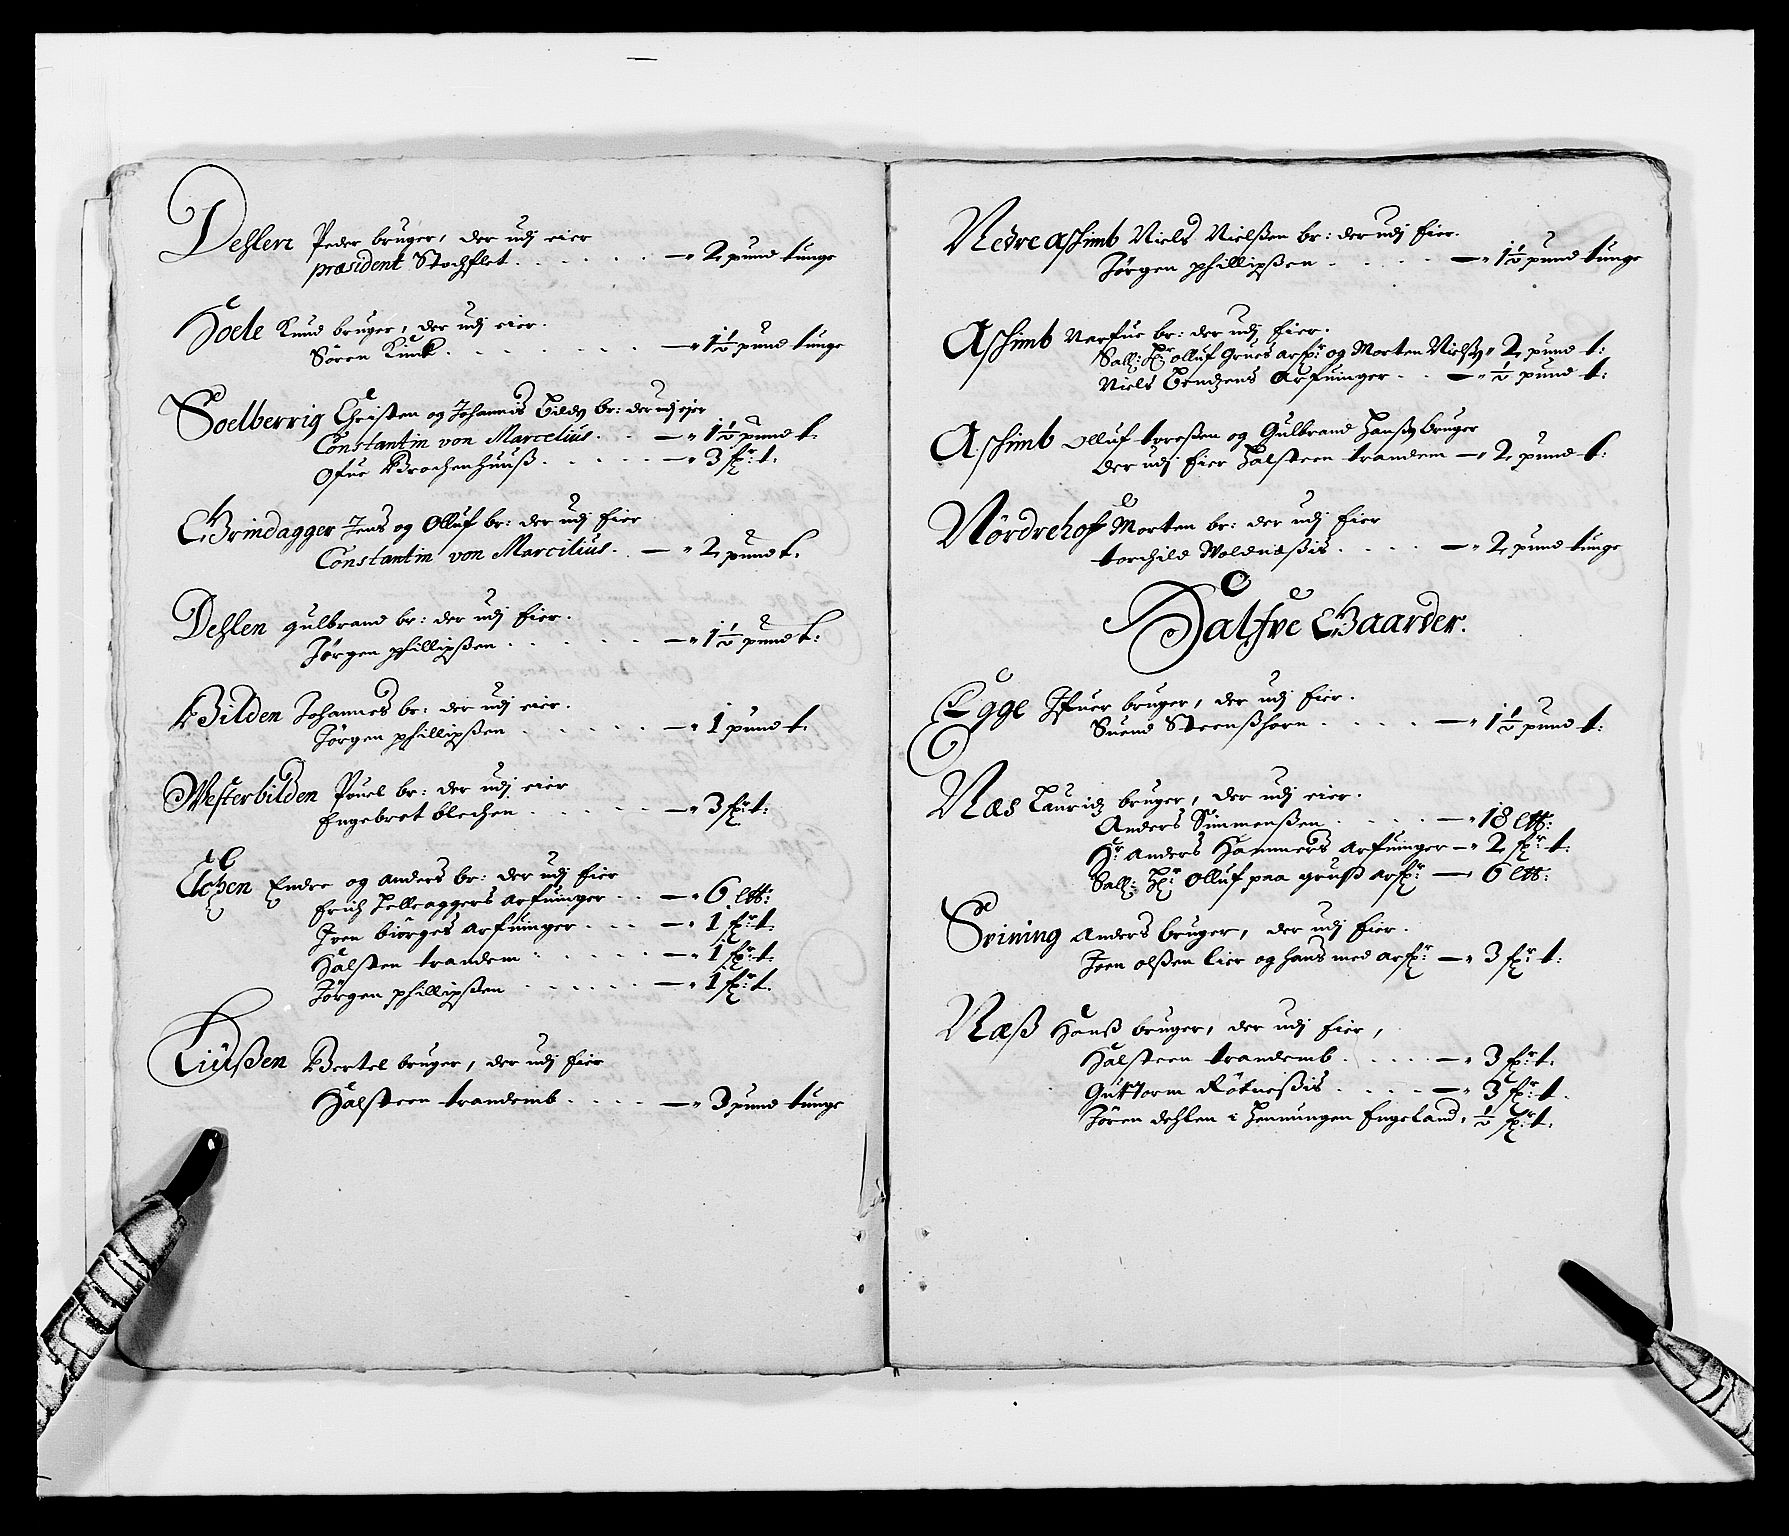 Dehlen Peder bruger, der udj eier
præsident Stochflet . . . . . . — 2 pund tunge
Hoele Knud bruger, der udj eier.
Sören Kinck . . . . . . . — 1½ pund tunge
Soelberrig Christen og Johannis Bildz br: der udj ejer
Constantin von Marcelius . . . — 1½ pund t.
Ofue Brochenhuuß . . . . . — 3 fr: t.
Grindagger Jens og Olluf br: der udj Eier
Constantin von Marcilius . . — 2 pund t.
Dehlen gulbrand br: der udj Eier.
Jørgen phillipßen . . . . . . — 1½ pund t:
Bilden Johannes br: der udj eier.
Jørgen phillipßen . . . . . . — 1 pund t.
Westerbilden Pouel br: der udj eier
Engebret blechen . . . . . — 3 fr: t:
Endre og anders br: der udj Eier
Erich Arfuinger . . — 6 ltt:
Iven biørges Arfuinger . . . — 1 fr: t.
Halsten trandem . . . . . . — 1 fr: t.
Jörgen phillipßen . . . . . . — 1 fr: t.
Bertel bruger, der udj Eier
Halsteen trandemb . . . . — 3 pund tunge
Nedre aschimb Niels Nielßen br: der udj Eier.
Jörgen phillipßen . . . . . — 1½ pund tunge
Aschimb Narfue br: der udj Eier.
Sall: Hr olluf Grues arf: og Morten Nielßz 2 pund t:
Niels Bendzens Arfuinger . . — ½ pund t:
Aschimb olluf toreßen og Gulbrand Hanßz bruger
der udj Eier Halsteen trandem — 2 pund t:
Nördrehof Morten br: der udj Eier
torchild . . . . — 2 pund tunge
Halfve Gaarder.
Egge Ifuer bruger, der udj Eier.
Suend Steenßhorn . . . . . — 1½ pund t:
Næs Lauridz bruger, der udj eier.
Anders Simmenßen . . . . — 18 ltt:
Hr Anders Hammers Arfuinger — 2 fr: t:
Sall: Hr: Olluf paa gruß arf: — 6 ltt:
Srining Anders bruger, der udj Eier.
Joen olßen lier og hans med arf: — 3 fr: t:
Næß Hanß bruger, der udj Eier,
Halsteen trandemb . . . . — 3 fr: t:
Guttorm Rötneßis . . . . — 3 fr: t.
Jören dehlen i Hennungen Engeland, ½ fr: t.